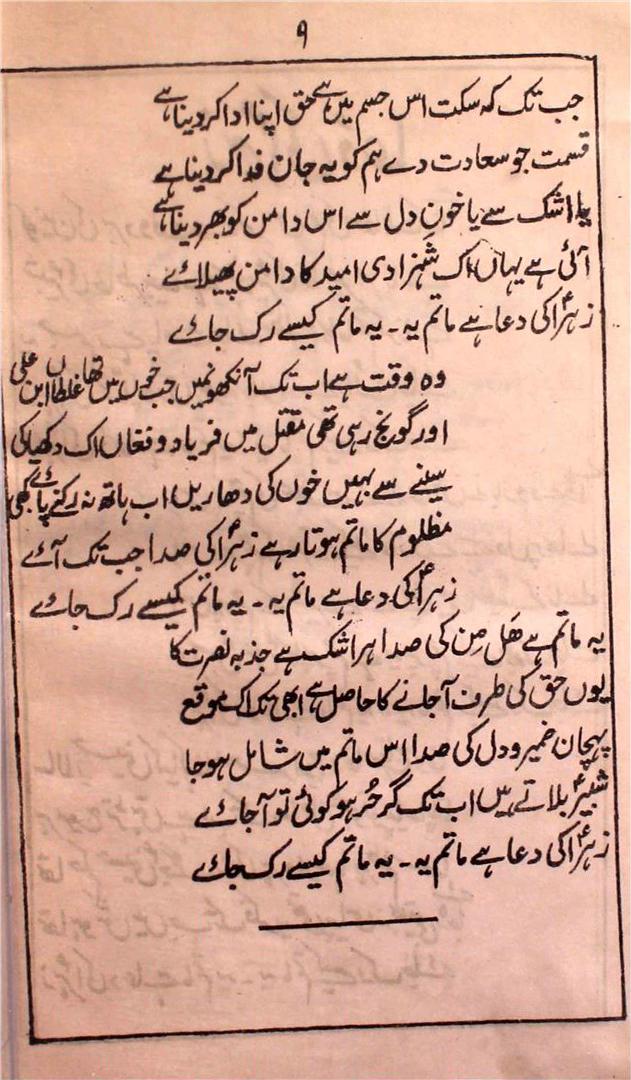 ۹
جب تک کہ سکت اس جسم میں ہے حق اپنا ادا کر دینا ہے
قسمت جو سعادت دے ہم کو یہ جان فدا کر دینا ہے
یا اشک سے یا خونِ دل سے اس دامن کو بھر دینا ہے
آئی ہے یہاں اک شہزادی امید کا دامن پھیلائے
زہراؑ کی دعا ہے ماتم یہ ۔ یہ ماتم کیسے رک جائے
وہ وقت ہے اب تک آنکھونمیں جب خوں میں تھا غلطاں ابن علی
اور گونج رہی تھی مقتل میں فریاد و فغاں اک دکھیا کی
سینے سے بہیں خوں کی دھاریں اب ہاتھ نہ رکنے پائے کبھی
مظلوم کا ماتم ہوتا رہے زہراؑ کی صدا جب تک آئے
زہراؑ کی دعا ہے ماتم یہ ۔ یہ ماتم کیسے رک جائے
یہ ماتم ہے ھَل مِن کی صدا ہر اشک ہے جذبہ نصرت کا
یوں حق کی طرف آجانے کا حاصل ہے ابھی تک اک موقع
پہچان ضمیر و دل کی صدا اس ماتم میں شامل ہو جا
شبیرؑ بلاتے ہیں اب تک گر حُر ہو کوئی تو آجائے
زہراؑ کی دعا ہے ماتم یہ ۔ یہ ماتم کیسے رک جائے